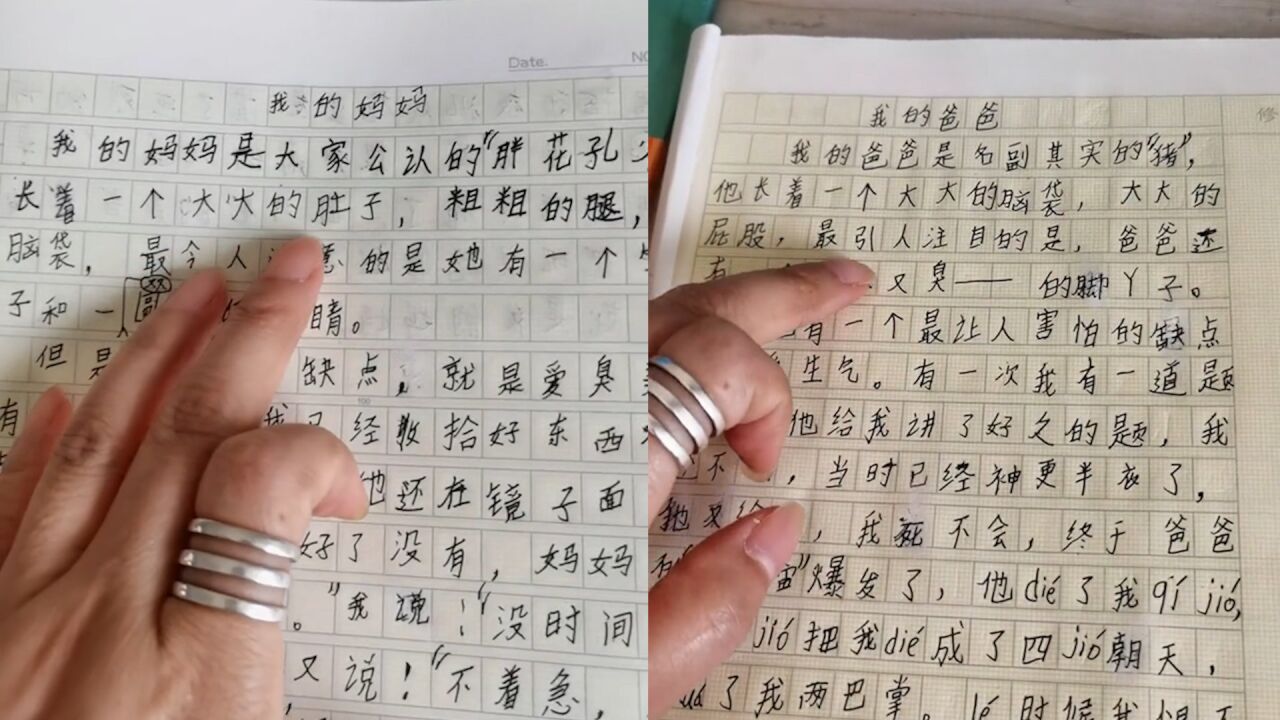 Date.
我的妈妈
我的妈妈是大家公认的"胖花孔
长着一个大大的肚子，粗粗的腿，
脑袋，最令人 意的是她有一个
子和一 睛。
但是 缺点，就是爱臭
有 我已经收拾好东西
他还在镜子面
好了没有，妈妈
。"我说！"没时间
又说！"不着急，
修
我的爸爸
我的爸爸是名副其实的"猪"，
他长着一个大大的脑袋，大大的
屁股，最引人注目的是，爸爸还
有 又臭——的脚丫子。
有一个最让人害怕的缺点
生气。有一次我有一道题
他给我讲了好久的题，我
不 ，当时已经神更半衣了，
他又给 ，我死不会，终于爸爸
宙"爆发了，他dié了我qí jió，
jió把我dié成了四jió朝天，
了我两巴掌。 lé时候我